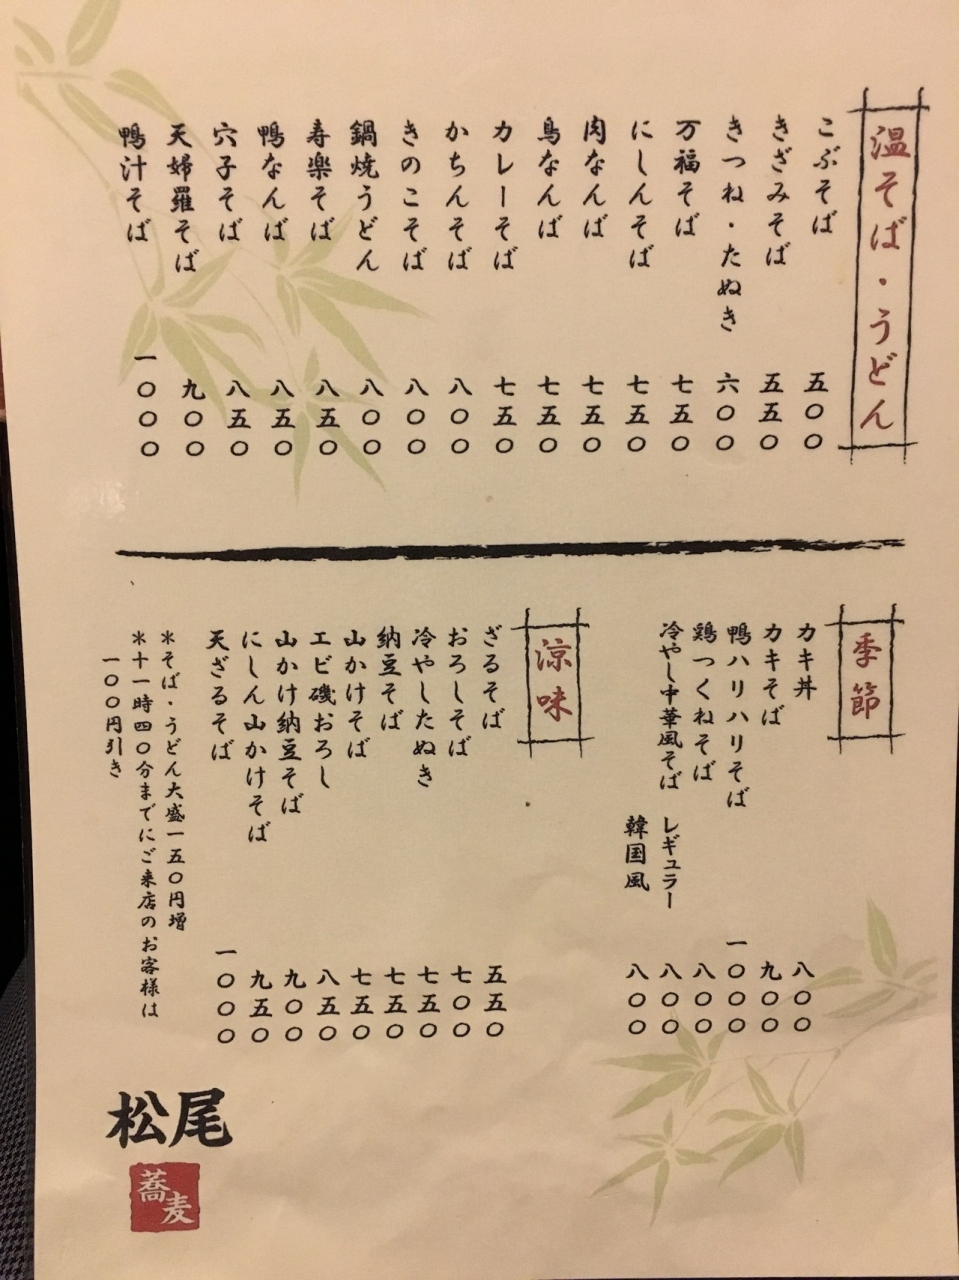 温そば・うどん
こぶそば 五〇〇
きざみそば 五五〇
きつね・たぬき 六〇〇
万福そば 七五〇
にしんそば 七五〇
肉なんば 七五〇
鳥なんば 七五〇
カレーそば 七五〇
かちんそば 八〇〇
きのこそば 八〇〇
鍋焼うどん 八〇〇
寿楽そば 八五〇
鴨なんば 八五〇
穴子そば 八五〇
天婦羅そば 九〇〇
鴨汁そば 一〇〇〇
季節
カキ丼 八〇〇
カキそば 九〇〇
鴨ハリハリそば 一〇〇〇
鶏つくねそば 八〇〇
冷やし中華風そば レギュラー 八〇〇
韓国風 八〇〇
涼味
ざるそば 五五〇
おろしそば 七〇〇
冷やしたぬき 七五〇
納豆そば 七五〇
山かけそば 七五〇
エビ磯おろし 八五〇
山かけ納豆そば 九〇〇
にしん山かけそば 九五〇
天ざるそば 一〇〇〇
＊そば・うどん大盛一五〇円増
＊十一時四〇分までにご来店のお客様は
一〇〇円引き
松尾
蕎麦